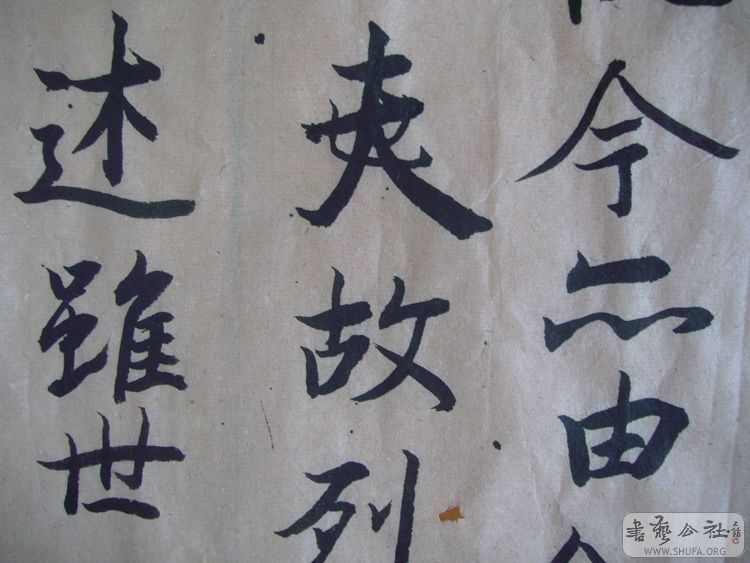 今亦由
夫故列
述雖世
書藝公社
WWW.SHUFA.ORG